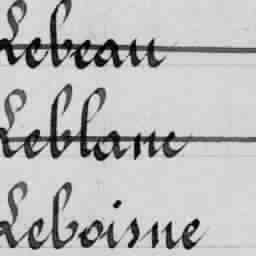 Lebeau
Leblanc
Leboisne